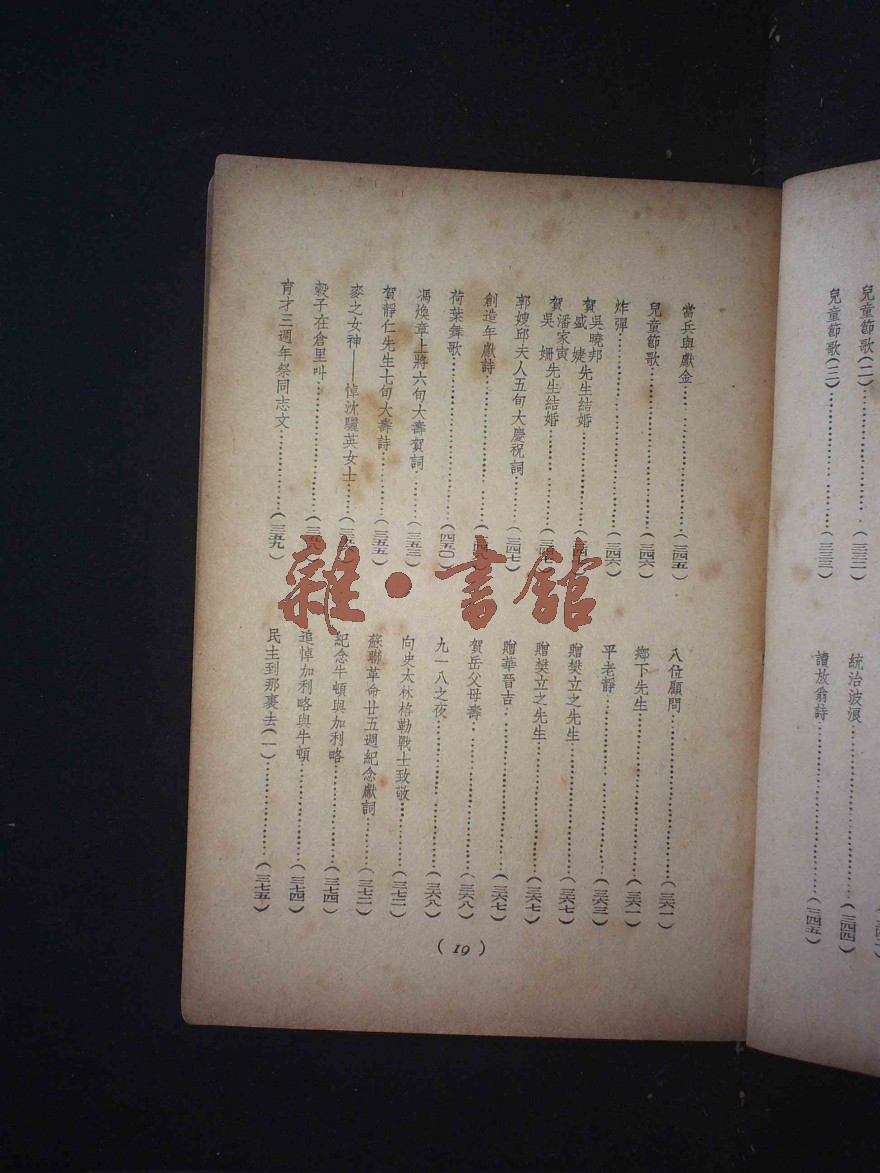 兒童節歌(二)⋯⋯(三三二)
兒童節歌(三)⋯⋯(三三三)
統治波浪⋯⋯(三四四)
讀放翁詩⋯⋯(三四五)
當兵與獻金⋯⋯(三四五)
兒童節歌⋯⋯(三四六)
炸彈⋯⋯(三四六)
賀吳曉邦盛婕先生結婚⋯⋯
賀潘家寅吳姍先生結婚⋯⋯
郭嫂邱夫人五旬大慶祝詞⋯⋯(三四七)
創造年獻詩⋯⋯
荷葉舞歌⋯⋯(四五〇)
馮煥章上將六旬大壽賀詞⋯⋯(三五三)
賀靜仁先生七旬大壽詩⋯⋯(三五五)
麥之女神——悼沈驪英女士⋯⋯
穀子在倉里叫⋯⋯
育才三週年祭同志文⋯⋯(三五九)
八位顧問⋯⋯(三六一)
鄉下先生⋯⋯(三六一)
平老靜⋯⋯(三六三)
贈樊立之先生⋯⋯(三六七)
贈樊立之先生⋯⋯(三六七)
贈華晉吉⋯⋯(三六七)
賀岳父母壽⋯⋯(三六八)
九一八之夜⋯⋯(三六八)
向史太林格勒戰士致敬⋯⋯(三七二)
蘇聯革命廿五週紀念獻詞⋯⋯(三七二)
紀念牛頓與加利略⋯⋯(三七四)
追悼加利略與牛頓⋯⋯(三七四)
民主到那裏去(一)⋯⋯(三七五)
(19)
雜·書館